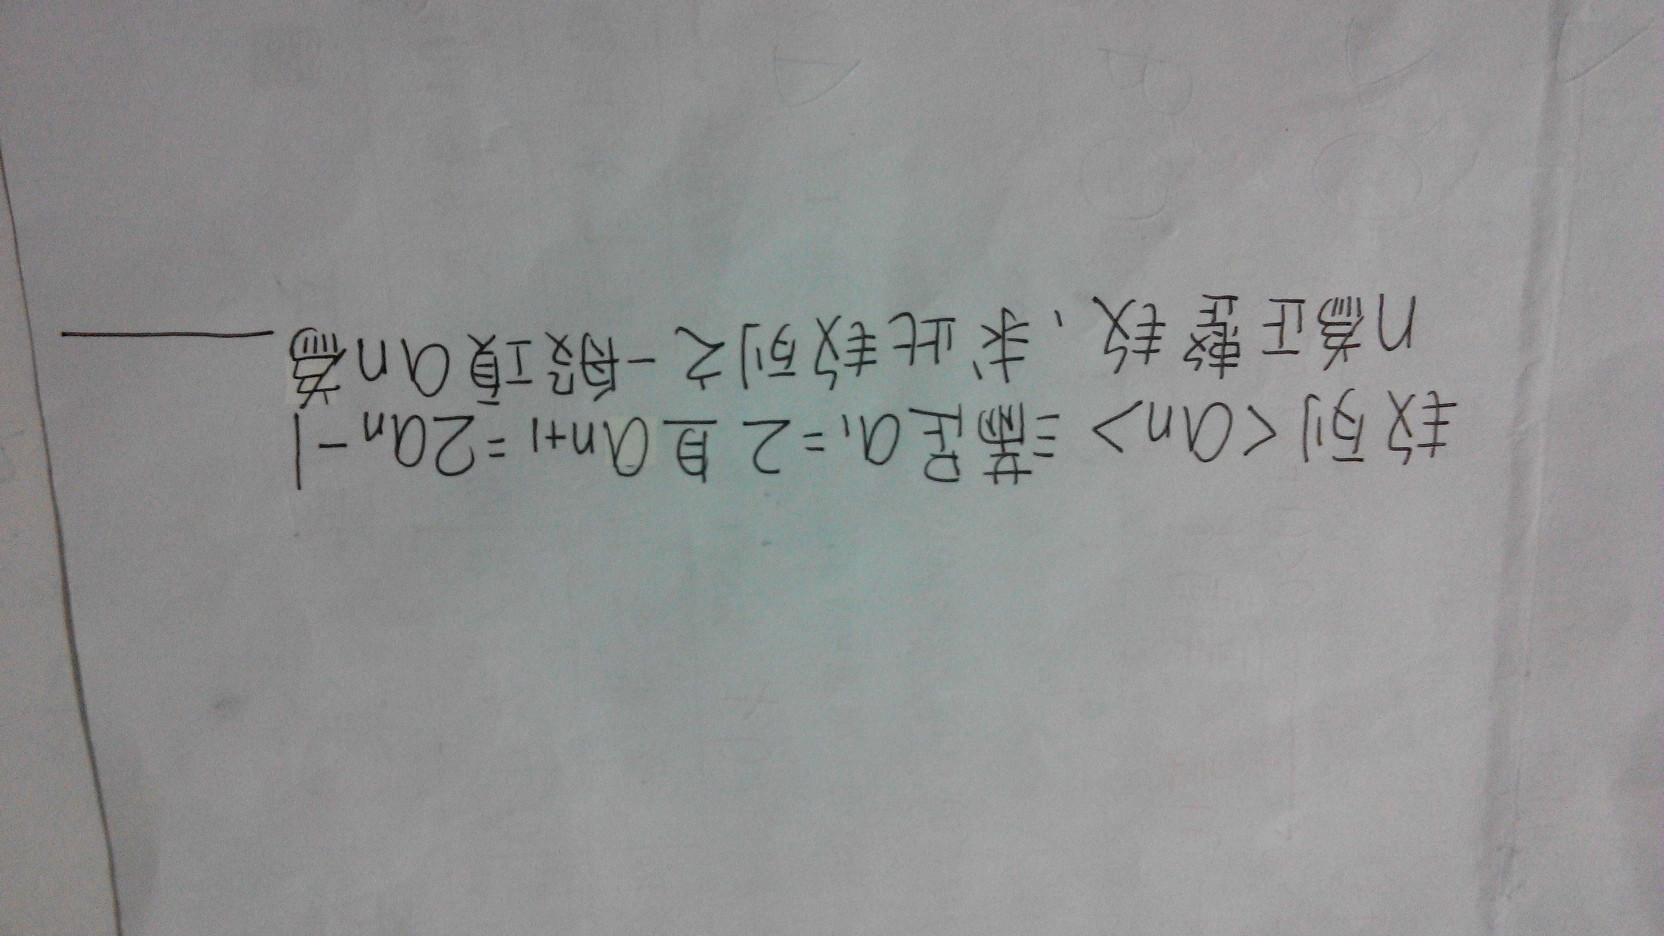 数列<an>滿足a₁=2且an+1=2an-1
n為正整数，求此数列之一般項an為______